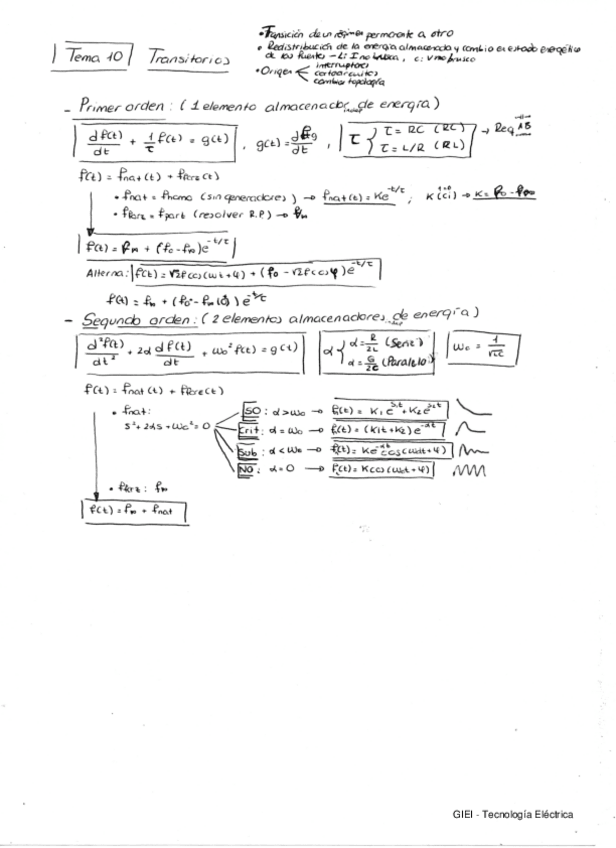 Tema 10 Transitorios
• Transición de un régimen permanente a otro
• Redistribución de la energía almacenada y cambio en estado energético de las fuentes - L: I no brusca, C: V no brusco
• Origen < interruptores
cortocircuitos
cambios topología
- Primer orden: (1 elemento almacenador de energía)
df(t)/dt + 1/τ f(t) = g(t) , g(t) = , τ { τ = RC (RC) → Req AB
τ = L/R (RL)
f(t) = fnat(t) + fforz(t)
• fnat = fhomo (sin generadores) → fnat(t) = Ke^-t/τ ; K (ci) t=0 → K = f0 - f∞
• fforz = fpart (resolver R.P) → f∞
f(t) = f∞ + (f0 - f∞)e^-t/τ
Alterna: f(t) = √2 F cos(ωt + φ) + (f0 - √2 F cos φ)e^-t/τ
f(t) = f∞ + (f0 - f∞(0)) e^-t/τ
- Segundo orden: (2 elementos almacenadores de energía)
d²f(t)/dt² + 2α df(t)/dt + ω0² f(t) = g(t) α { α = R/2L (Serie) ω0 = 1/√LC
α = G/2C (Paralelo)
f(t) = fnat(t) + fforz(t)
• fnat:
s² + 2αs + ω0² = 0
SO: α > ω0 → f(t) = K1e^s1t + K2e^s2t
Crit: α = ω0 → f(t) = (K1t + K2)e^-αt
Sub: α < ω0 → f(t) = Ke^-αt cos(ωdt + φ)
NO: α = 0 → f(t) = K cos(ω0t + φ)
• fforz: f∞
f(t) = f∞ + fnat
GIEI - Tecnología Eléctrica